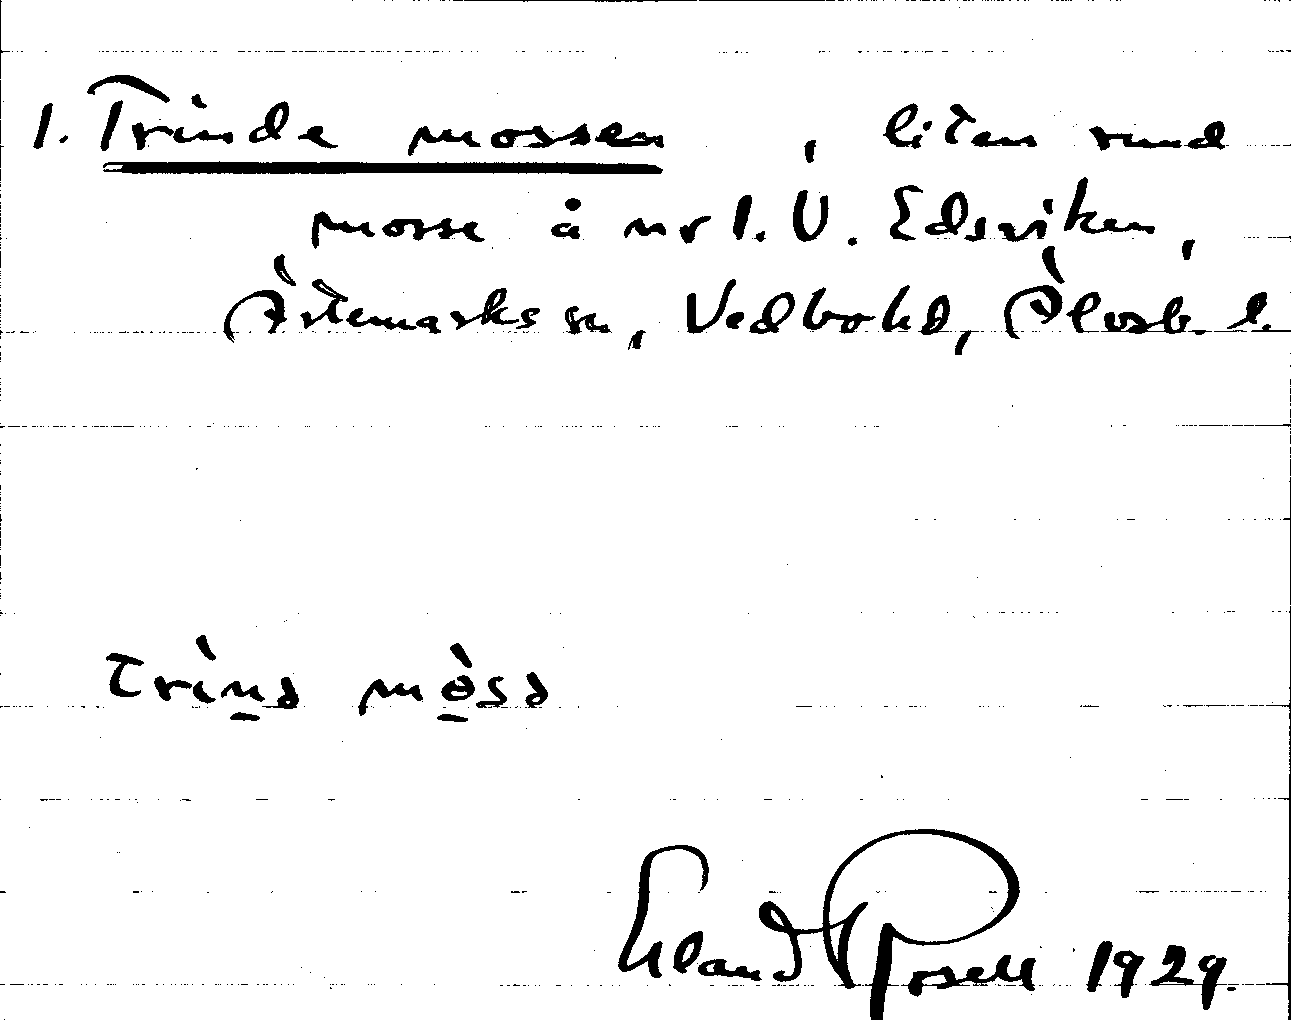 1. Trinde mossen, liten rund
mosse å nr 1. V. Edsviken,
Ärtemarks sn, Vedbo hd, Älvsb. l.
trìn̠ə mò̠sə
Erland Rosell 1929.